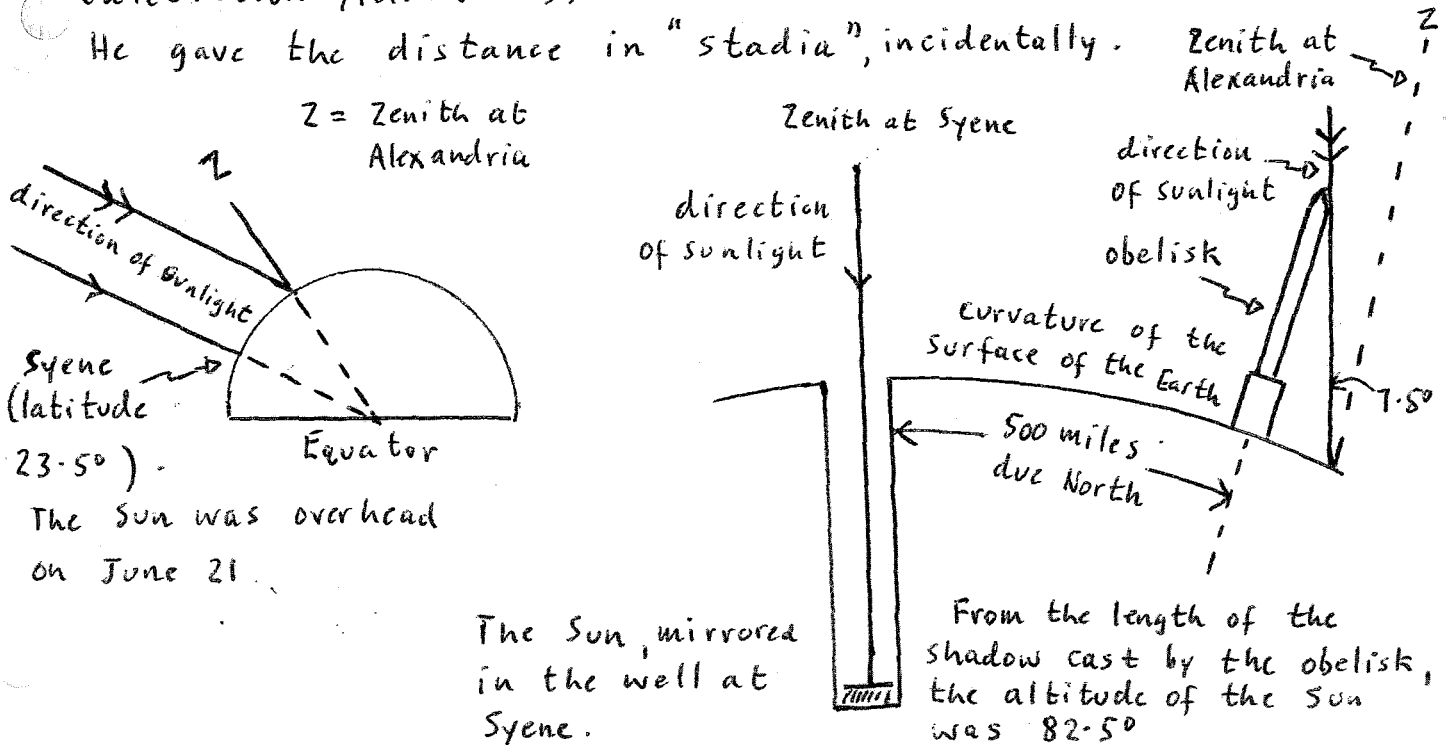 He gave the distance in "stadia", incidentally.
Z = Zenith at
Alexandria
Z
direction of sunlight
Syene
(latitude
23.5°).
Equator
The Sun was overhead
on June 21.
Zenith at Syene
direction
of sunlight
The Sun, mirrored
in the well at
Syene.
Zenith at
Alexandria
Z
direction
of sunlight
obelisk
curvature of the
surface of the Earth
7.5°
500 miles
due North
From the length of the
shadow cast by the obelisk,
the altitude of the Sun
was 82.5°